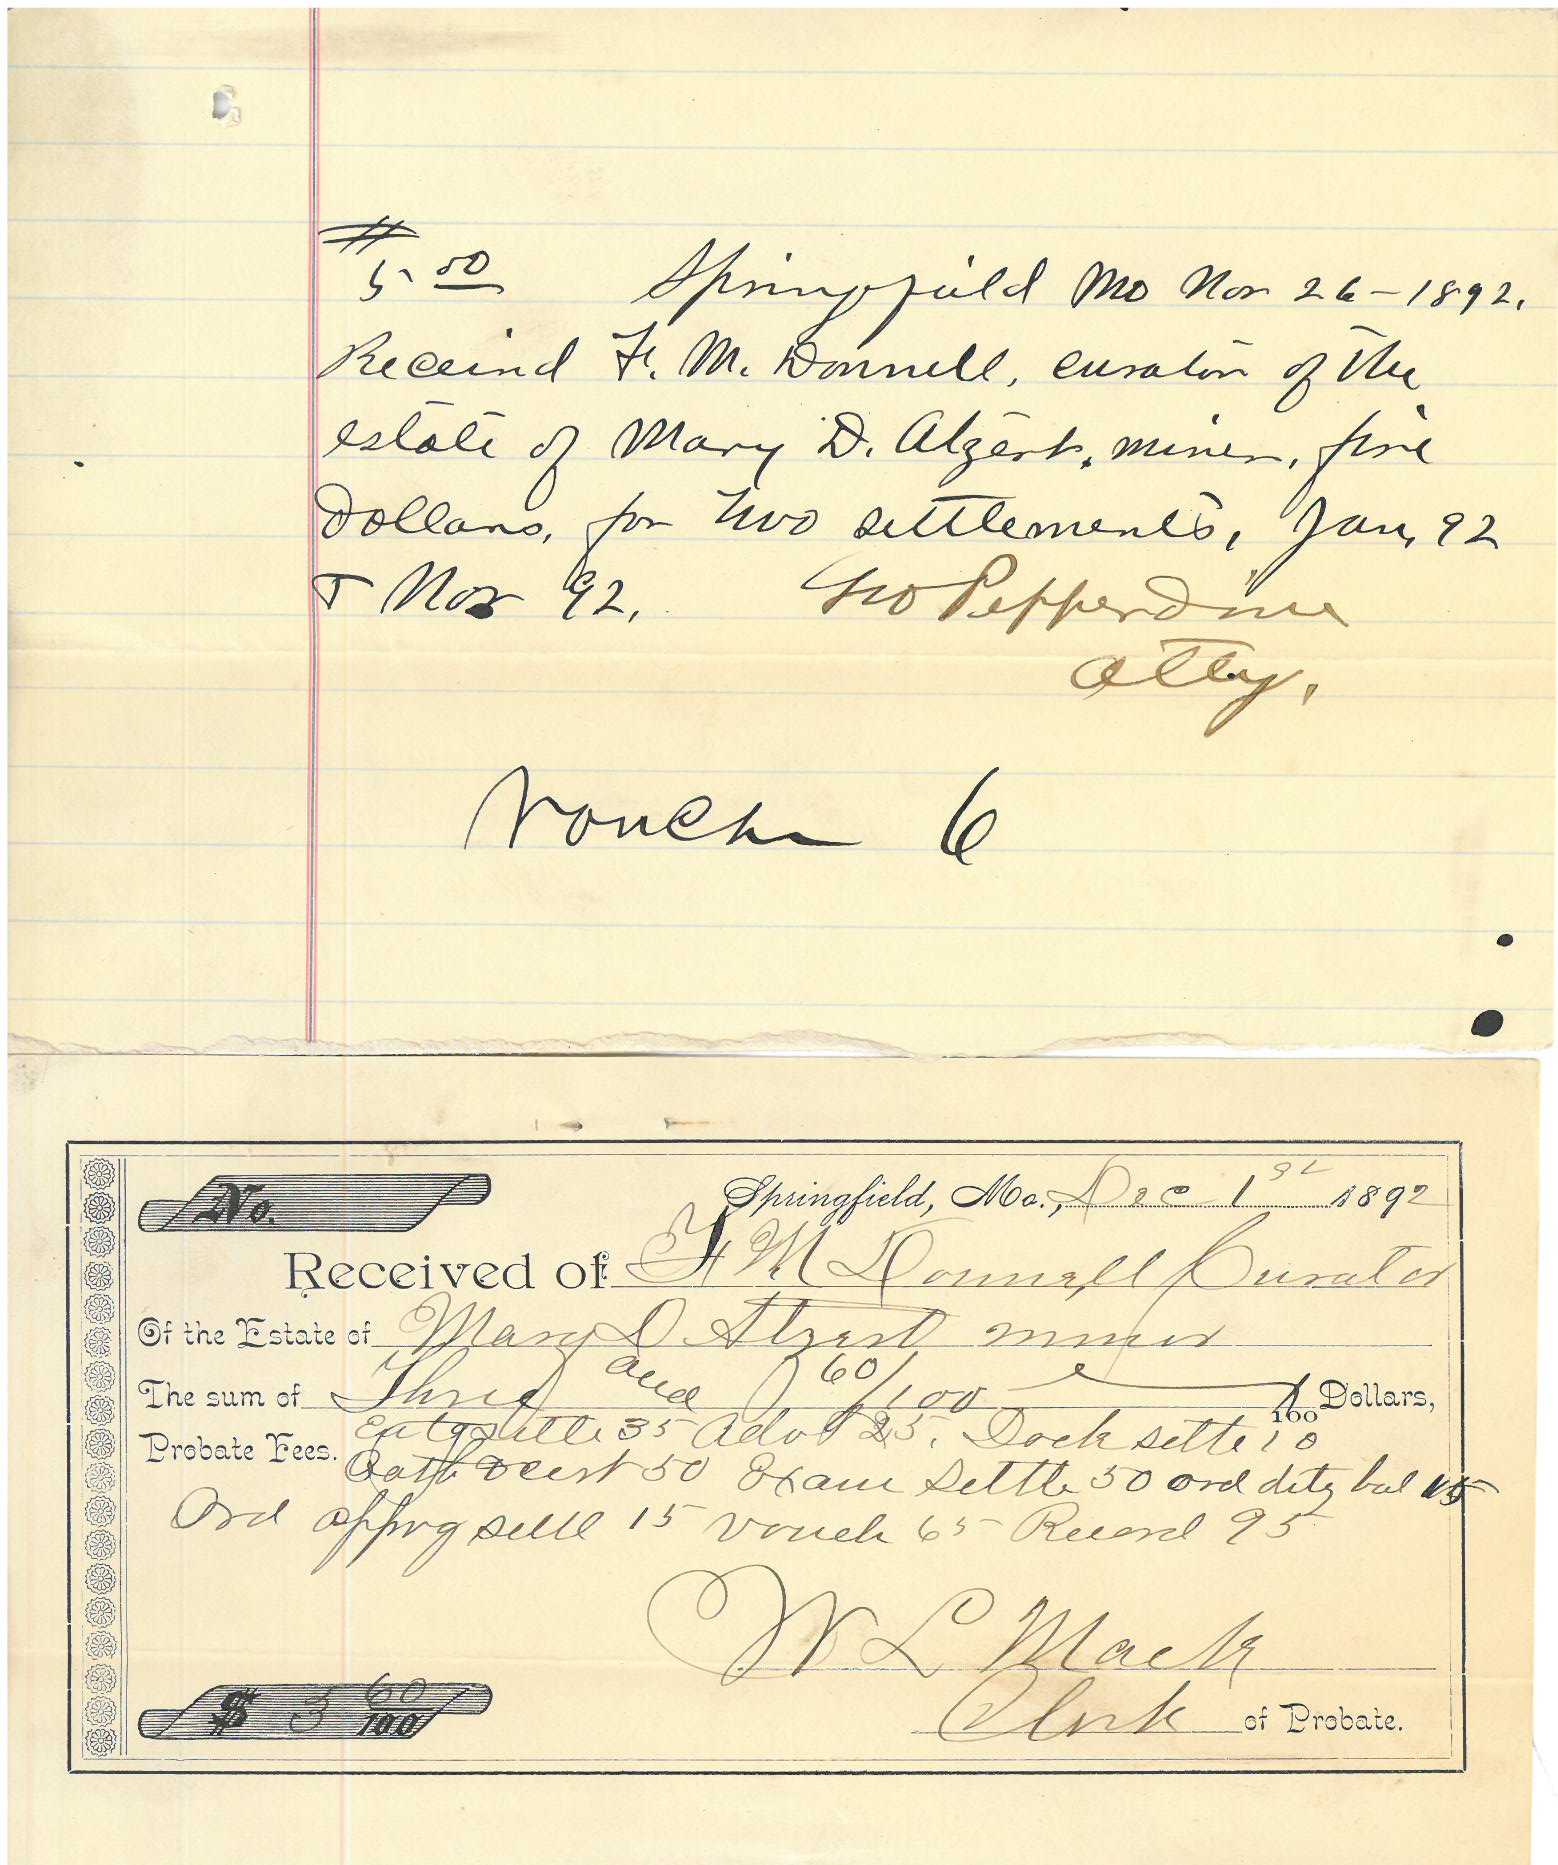 #
5 50 Springfield Mo Nov 26 - 1892.
Received F. M. Donnell, curator of the
estate of Mary D. Atzert, minor, five
Dollars, for two settlements, Jan, 92
& Nov 92. Geo Pepperdine
atty.
Voucher 6
No. Springfield, Mo., Dec 1st 1892
Received of F M Donnell Curator
Of the Estate of Mary D Atzert minor
The sum of Three and 60/100 Dollars,
100
Probate Fees. settle 35 Adv 25. Dock settle 10
Oath 50 Exam settle 50 ord bal 15
Ord apprvg settl 15 vouch 65 Record 95
W L Mack
$ 3 60/100 Clerk of Probate.